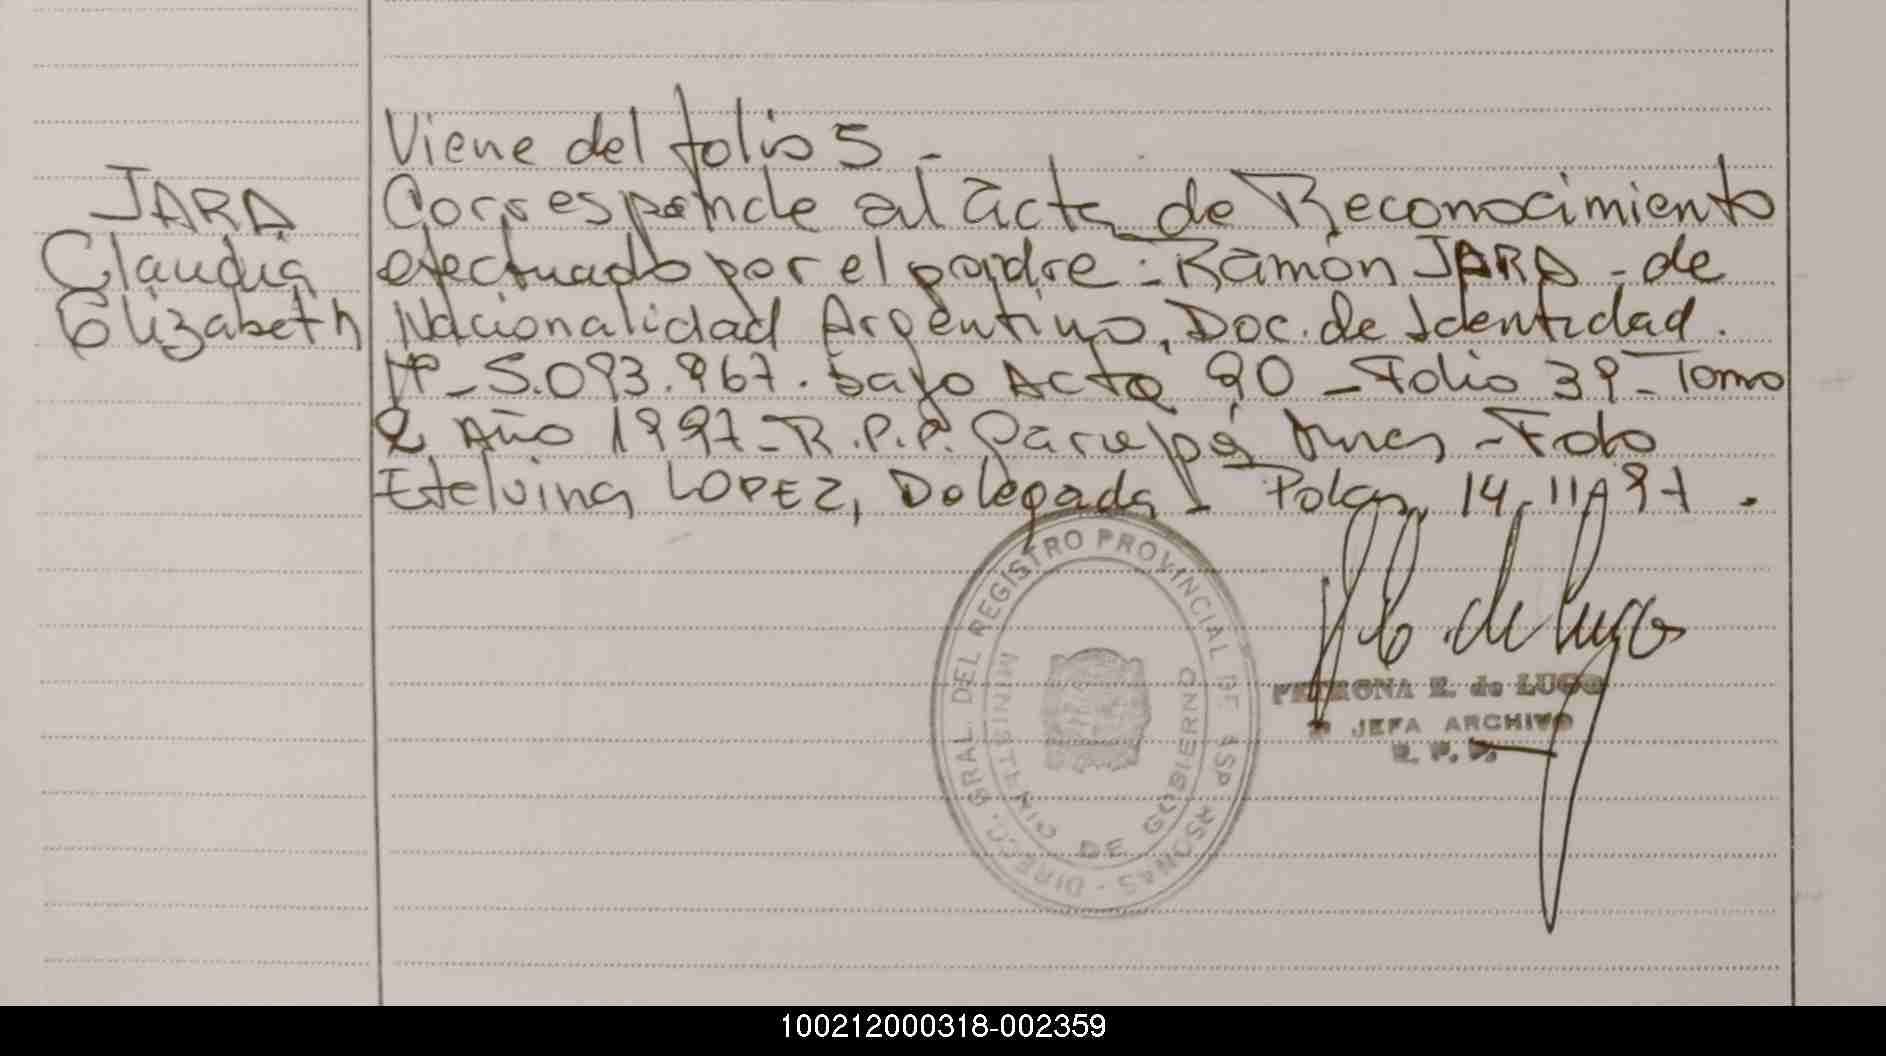 Viene del folio 5 -
JARA
Claudia
Elizabeth
Corresponde al acta de Reconocimiento
efectuado por el padre : Ramón JARA - de
Nacionalidad Argentino, Doc. de Identidad.
Nº - 5.093.967. bajo Acta 90 - Folio 39 - Tomo
2 Año 1997 - R.P.P. - Foto
Etelvina LOPEZ, Delegada - Pdas, 14-11-97.
DIRECC. GRAL. DEL REGISTRO PROVINCIAL DE LAS PERSONAS
MINISTERIO DE GOBIERNO
PETRONA E. de LUGO
JEFA ARCHIVO
R. P. P.
100212000318-002359